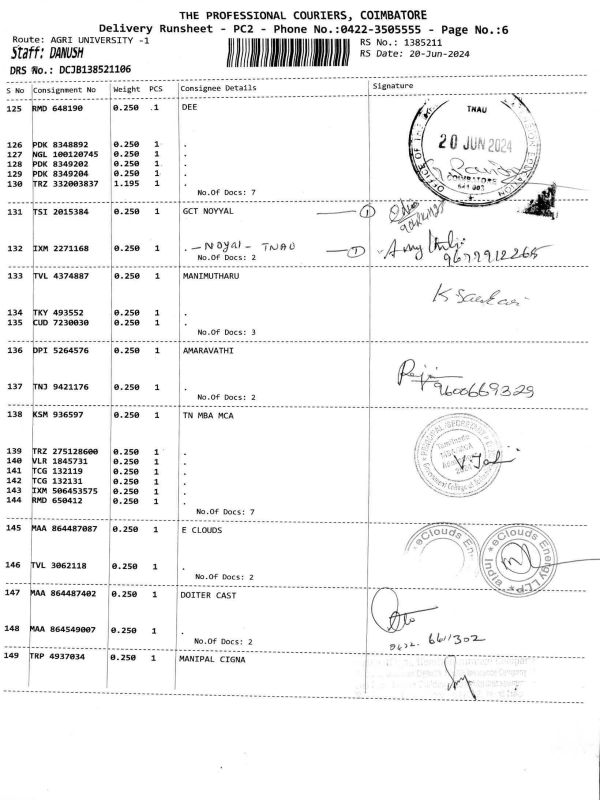 THE PROFESSIONAL COURIERS, COIMBATORE
Delivery Runsheet - PC2 - Phone No.:0422-3505555 - Page No.:6
Route: AGRI UNIVERSITY -1
RS No.: 1385211
Staff: DANUSH
RS Date: 20-Jun-2024
DRS No.: DCJB138521106
S No Consignment No Weight PCS Consignee Details Signature
125 RMD 648190 0.250 .1 DEE
TNAU
20 JUN 2024
COIMBATORE
641 003
126 PDK 8348892 0.250 1 .
127 NGL 100120745 0.250 1 .
128 PDK 8349202 0.250 1 .
129 PDK 8349204 0.250 1 .
130 TRZ 332003837 1.195 1 .
No.Of Docs: 7
131 TSI 2015384 0.250 1 GCT NOYYAL 1
132 IXM 2271168 0.250 1 . - Noyal - TNAU 1
No.Of Docs: 2
133 TVL 4374887 0.250 1 MANIMUTHARU
134 TKY 493552 0.250 1 .
135 CUD 7230030 0.250 1 .
No.Of Docs: 3
136 DPI 5264576 0.250 1 AMARAVATHI
9600669329
137 TNJ 9421176 0.250 1 .
No.Of Docs: 2
138 KSM 936597 0.250 1 TN MBA MCA
139 TRZ 275128600 0.250 1 .
140 VLR 1845731 0.250 1 .
141 TCG 132119 0.250 1 .
142 TCG 132131 0.250 1 .
143 IXM 506453575 0.250 1 .
144 RMD 650412 0.250 1 .
No.Of Docs: 7
145 MAA 864487087 0.250 1 E CLOUDS
eClouds En
eClouds Energy LLP India
146 TVL 3062118 0.250 1 .
No.Of Docs: 2
147 MAA 864487402 0.250 1 DOITER CAST
148 MAA 864549007 0.250 1 .
No.Of Docs: 2
149 TRP 4937034 0.250 1 MANIPAL CIGNA